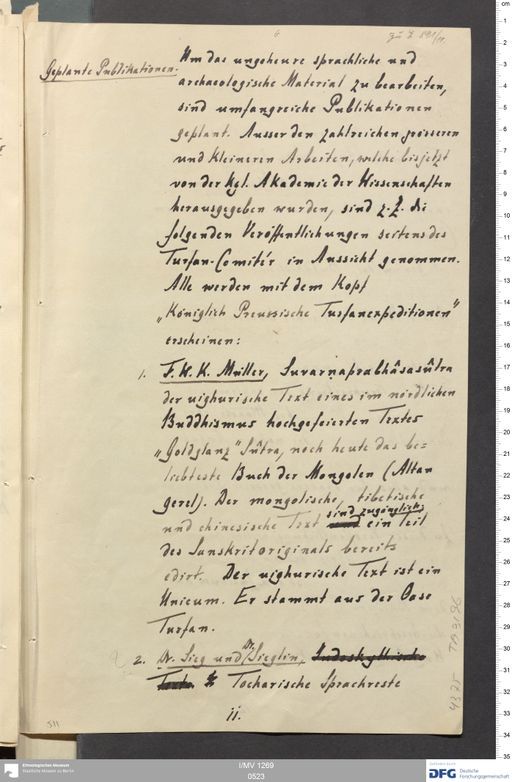 6
zu I 891/11
Geplante Publikationen.
Um das ungeheure sprachliche und
archaeologische Material zu bearbeiten,
sind umfangreiche Publikationen
geplant. Ausser den zahlreichen grösseren
und kleineren Arbeiten, welche bis jetzt
von der Kgl. Akademie der Wissenschaften
herausgegeben wurden, sind z. Z. die
folgenden Veröffentlichungen seitens des
Turfan-Comités in Aussicht genommen.
Alle werden mit dem Kopf
„Königlich Preussische Turfanexpeditionen"
erscheinen:
1. F. W. K. Müller, Suvarṇaprabhâsasûtra
der uighurische Text eines im nördlichen
Buddhismus hochgefeierten Textes
„Goldglanz" Sûtra, noch heute das be-
liebteste Buch der Mongolen (Altan
gerel). Der mongolische, tibetische
und chinesische Text sind zugänglich, ein Teil
des Sanskritoriginals bereits
edirt. Der uighurische Text ist ein
Unicum. Er stammt aus der Oase
Turfan.
2. Dr. Sieg und Dr. Sieglin, Indoskythische
Texte. Tocharische Sprachreste
11.
Ethnologisches Museum
Staatliche Museen zu Berlin
I/MV 1269
0523
DFG Deutsche
Forschungsgemeinschaft
cm
0
1
2
3
4
5
6
7
8
9
10
11
12
13
14
15
16
17
18
19
20
21
22
23
24
25
26
27
28
29
30
31
32
33
34
35